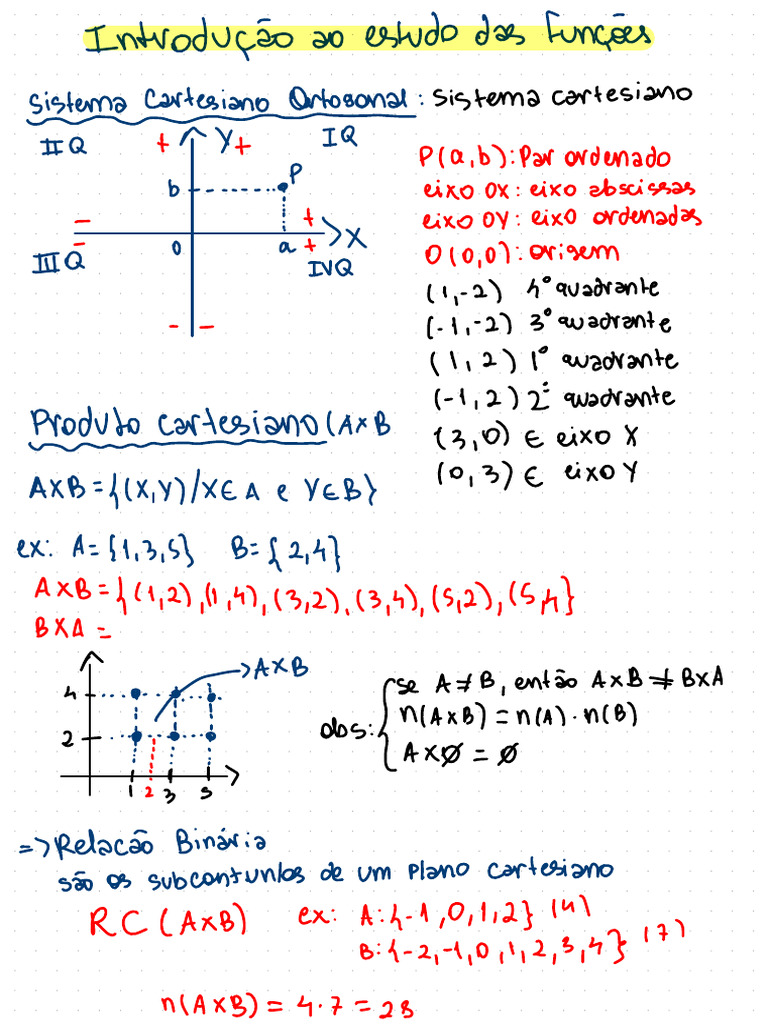 Introdução ao estudo das Funções
Sistema Cartesiano Ortogonal: Sistema cartesiano
II Q + Y + I Q
b P
- +
- 0 a + X
III Q IV Q
- -
P(a,b): Par ordenado
eixo OX: eixo abscissas
eixo OY: eixo ordenadas
O(0,0): origem
(1,-2) 4º quadrante
(-1,-2) 3º quadrante
(1,2) 1º quadrante
(-1,2) 2º quadrante
(3,0) ∈ eixo X
(0,3) ∈ eixo Y
Produto cartesiano (A×B
A×B={(X,Y)/X∈A e Y∈B}
ex: A={1,3,5} B={2,4}
A×B={(1,2),(1,4),(3,2),(3,4),(5,2),(5,4}
B×A=
4 A×B
2
1 2 3 5
obs: se A≠B, então A×B≠B×A
n(A×B)=n(A)·n(B)
A×Ø=Ø
=> Relacão Binária
são os subconjuntos de um plano cartesiano
RC(A×B) ex: A:{-1,0,1,2} (4)
B:{-2,-1,0,1,2,3,4} (7)
n(A×B)=4·7=28